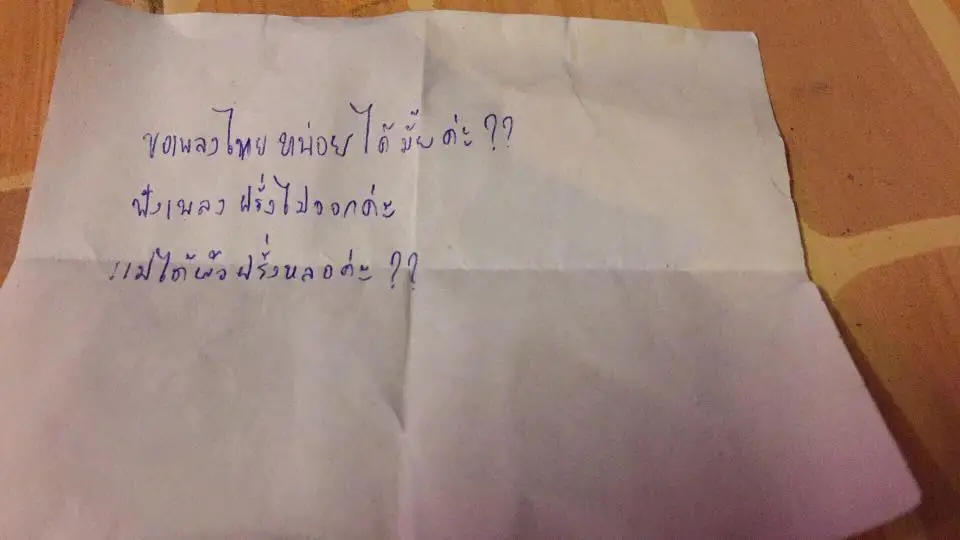 ขอเพลงไทย หน่อยได้มั้ยค่ะ??
ฟังเพลง ฝรั่งไม่ออกค่ะ
แม่ได้ผัวฝรั่งหลอค่ะ ??